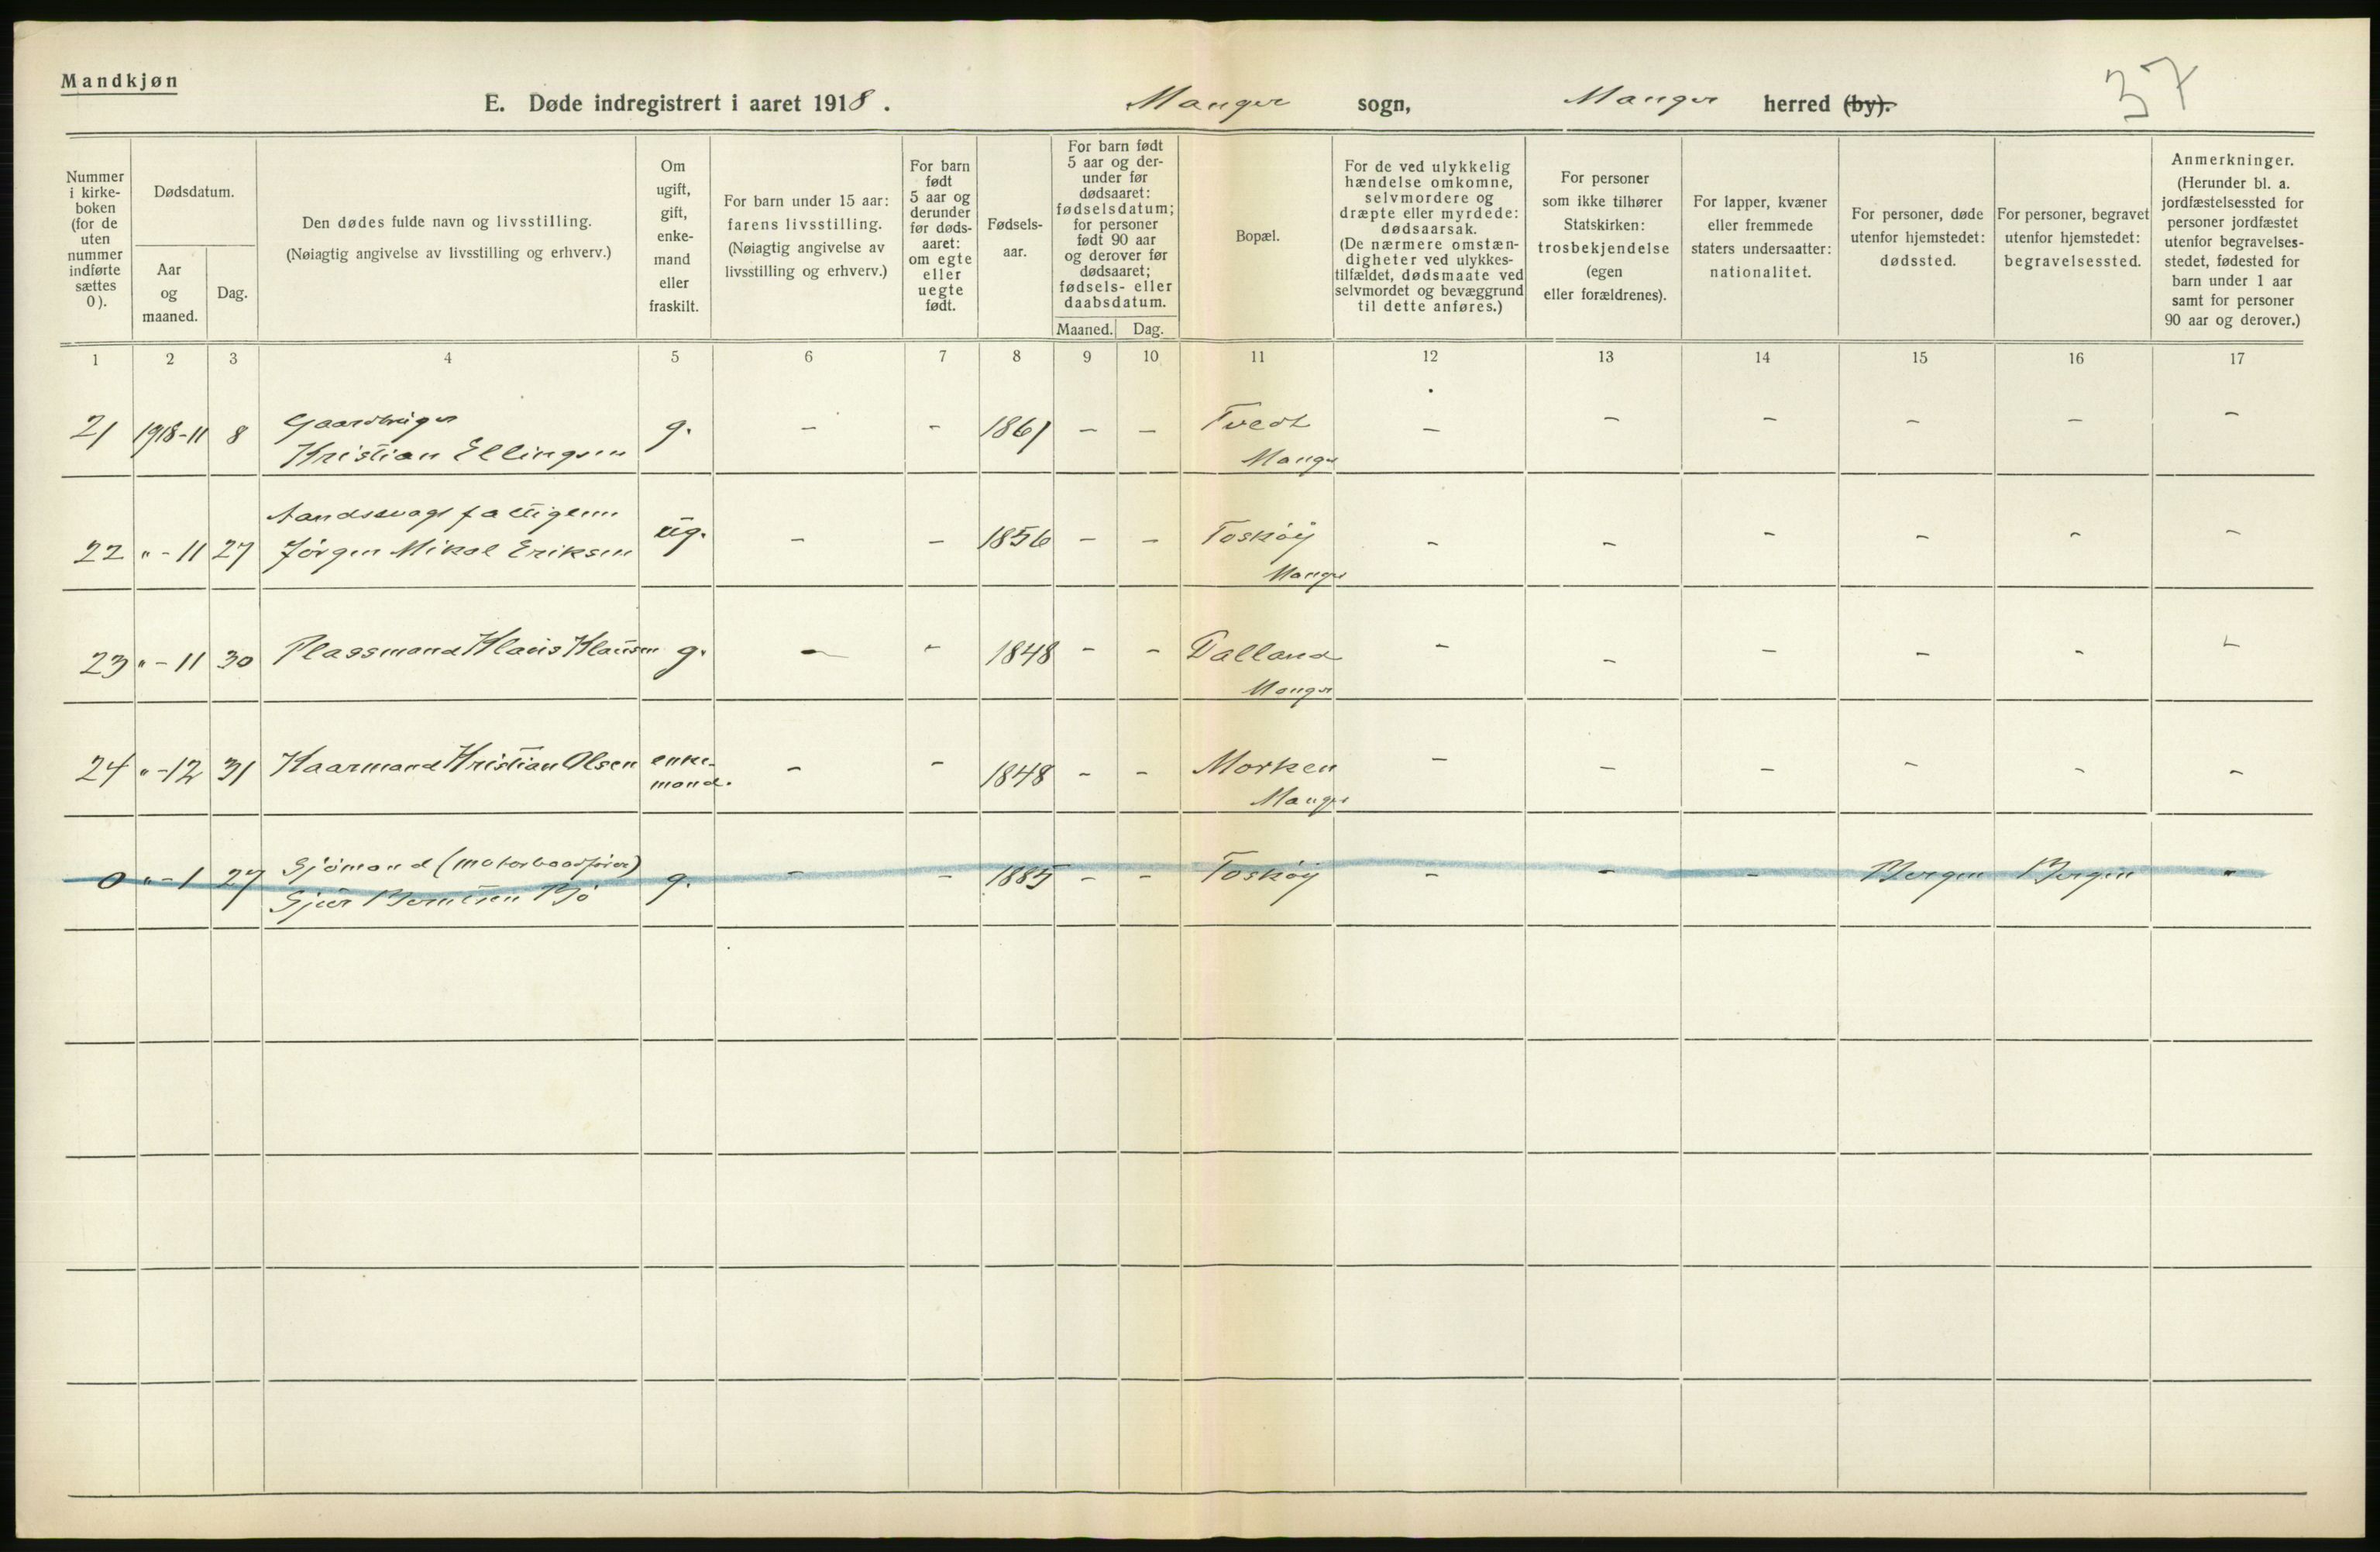 Mandkjøn
E. Døde indregistrert i aaret 1918. Manger sogn, Manger herred (by).
37
Nummer
i kirke-
boken
(for de
uten
nummer
indførte
sættes
0).
Dødsdatum.
Aar
og
maaned.
Dag.
Den dødes fulde navn og livsstilling.
(Nøiagtig angivelse av livsstilling og erhverv.)
Om
ugift,
gift,
enke-
mand
eller
fraskilt.
For barn under 15 aar:
farens livsstilling.
(Nøiagtig angivelse av
livsstilling og erhverv.)
For barn
født
5 aar og
derunder
før døds-
aaret:
om egte
eller
uegte
født.
Fødsels-
aar.
For barn født
5 aar og der-
under før
dødsaaret:
fødselsdatum;
for personer
født 90 aar
og derover før
dødsaaret;
fødsels- eller
daabsdatum.
Maaned. Dag.
Bopæl.
For de ved ulykkelig
hændelse omkomne,
selvmordere og
dræpte eller myrdede:
dødsaarsak.
(De nærmere omstæn-
digheter ved ulykkes-
tilfældet, dødsmaate ved
selvmordet og bevæggrund
til dette anføres.)
For personer
som ikke tilhører
Statskirken:
trosbekjendelse
(egen
eller forældrenes).
For lapper, kvæner
eller fremmede
staters undersaatter:
nationalitet.
For personer, døde
utenfor hjemstedet:
dødssted.
For personer, begravet
utenfor hjemstedet:
begravelsessted.
Anmerkninger.
(Herunder bl. a.
jordfæstelsessted for
personer jordfæstet
utenfor begravelses-
stedet, fødested for
barn under 1 aar
samt for personer
90 aar og derover.)
1 2 3 4 5 6 7 8 9 10 11 12 13 14 15 16 17
Gaardbruger
21 1918-11 8 Kristian Ellingsen g. - - 1861 - - Tvedt - - - - - -
Manger
Aandssvag fattiglem
22 " - 11 27 Jörgen Mikal Eriksen ug. - - 1856 - - Toskøy - - - - - -
Manger
23 " - 11 30 Plassmand Klaus Klausen g. - - 1848 - - Dalland - - - - - -
Manger
24 " - 12 31 Kaarmand Kristian Olsen enke- - - 1848 - - Morken - - - - - -
mand. Manger
Sjömand (motorbaadförer)
0 " - 1 27 Sjur Berntsen Bjö g. - - 1885 - - Toskøy - - - Bergen Bergen "